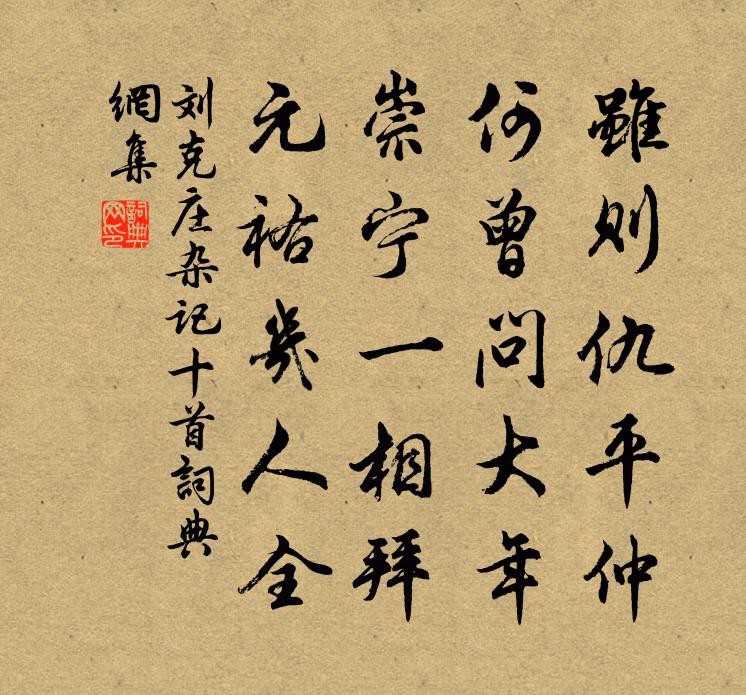 雖则仇平仲
何曾問大年
崇宁一相拜
元祐幾人全
刘克庄杂记十首詞典
網集
詞典网印